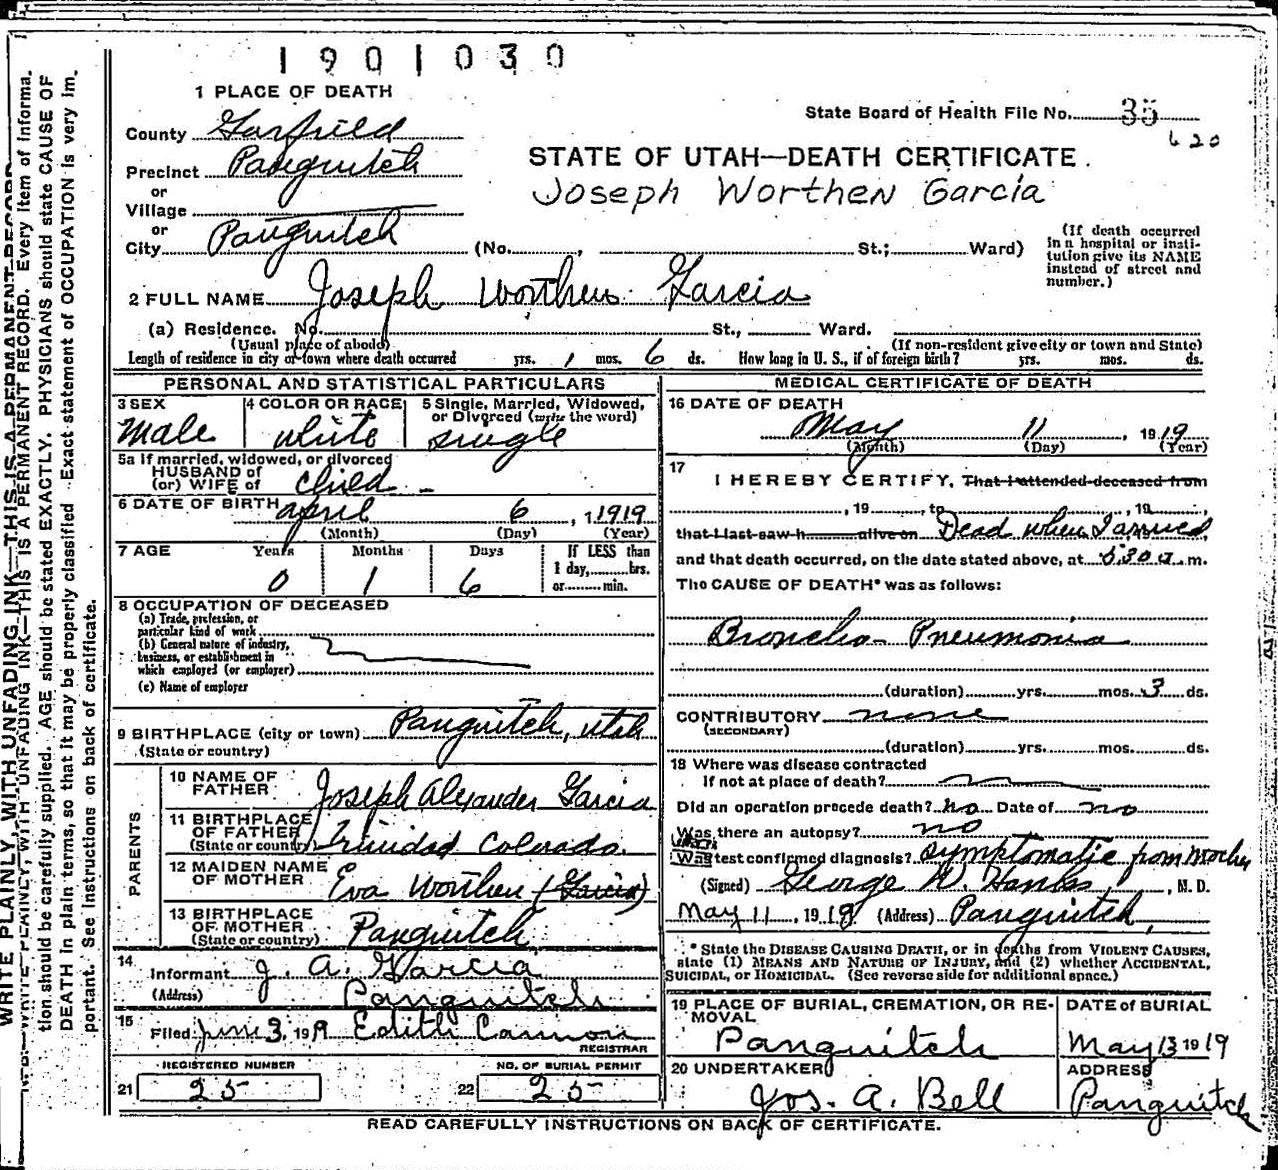 1901030
1 PLACE OF DEATH
State Board of Health File No. 35
620
County Garfield
STATE OF UTAH—DEATH CERTIFICATE.
Precinct Panguitch
Joseph Worthen Garcia
or
Village
or
City Panguitch (No. , St.; Ward)
(If death occurred in a hospital or insti-
tution give its NAME
instead of street and
number.)
2 FULL NAME Joseph Worthen Garcia
(a) Residence. No. St., Ward.
(Usual place of abode) (If non-resident give city or town and State)
Length of residence in city or town where death occurred yrs. 1 mos. 6 ds. How long in U. S., if of foreign birth? yrs. mos. ds.
PERSONAL AND STATISTICAL PARTICULARS
3 SEX 4 COLOR OR RACE 5 Single, Married, Widowed,
or Divorced (write the word)
Male white single
5a If married, widowed, or divorced
HUSBAND of
(or) WIFE of child
6 DATE OF BIRTH april 6, 1919
(Month) (Day) (Year)
7 AGE Years Months Days If LESS than
1 day, hrs.
or min.
0 1 6
8 OCCUPATION OF DECEASED
(a) Trade, profession, or
particular kind of work
(b) General nature of industry,
business, or establishment in
which employed (or employer)
(c) Name of employer
9 BIRTHPLACE (city or town) Panguitch, Utah
(State or country)
PARENTS
10 NAME OF
FATHER Joseph Alexander Garcia
11 BIRTHPLACE
OF FATHER
(State or country) Trinidad Colorado.
12 MAIDEN NAME
OF MOTHER Eva Worthen (Garcia)
13 BIRTHPLACE
OF MOTHER
(State or country) Panguitch
14
Informant J. A. Garcia
(Address) Panguitch
15
Filed June 3, 1919 Edith Cannon
REGISTRAR
REGISTERED NUMBER NO. OF BURIAL PERMIT
21 25 22 25
MEDICAL CERTIFICATE OF DEATH
16 DATE OF DEATH
May 11, 1919
(Month) (Day) (Year)
17
I HEREBY CERTIFY, That I attended deceased from
, 19 , to , 19 ,
that I last saw h alive on Dead when I arrived
and that death occurred, on the date stated above, at 5:30 a. m.
The CAUSE OF DEATH* was as follows:
Broncho Pneumonia
(duration) yrs. mos. 3 ds.
CONTRIBUTORY none
(SECONDARY)
(duration) yrs. mos. ds.
18 Where was disease contracted
If not at place of death?
Did an operation precede death? no Date of no
Was there an autopsy? no
What test confirmed diagnosis? Symptomatic from Mother
(Signed) George W. Hanks, M. D.
May 11, 1919 (Address) Panguitch,
* State the DISEASE CAUSING DEATH, or in deaths from VIOLENT CAUSES,
state (1) MEANS AND NATURE OF INJURY, and (2) whether ACCIDENTAL,
SUICIDAL, or HOMICIDAL. (See reverse side for additional space.)
19 PLACE OF BURIAL, CREMATION, OR RE-
MOVAL DATE of BURIAL
Panguitch May 13 1919
20 UNDERTAKER ADDRESS
Jos. A. Bell Panguitch
READ CAREFULLY INSTRUCTIONS ON BACK OF CERTIFICATE.
WRITE PLAINLY, WITH UNFADING INK—THIS IS A PERMANENT RECORD
N. B.—WRITE PLAINLY, WITH UNFADING INK—THIS IS A PERMANENT RECORD. Every item of informa-
tion should be carefully supplied. AGE should be stated EXACTLY. PHYSICIANS should state CAUSE OF
DEATH in plain terms, so that it may be properly classified. Exact statement of OCCUPATION is very im-
portant. See instructions on back of certificate.